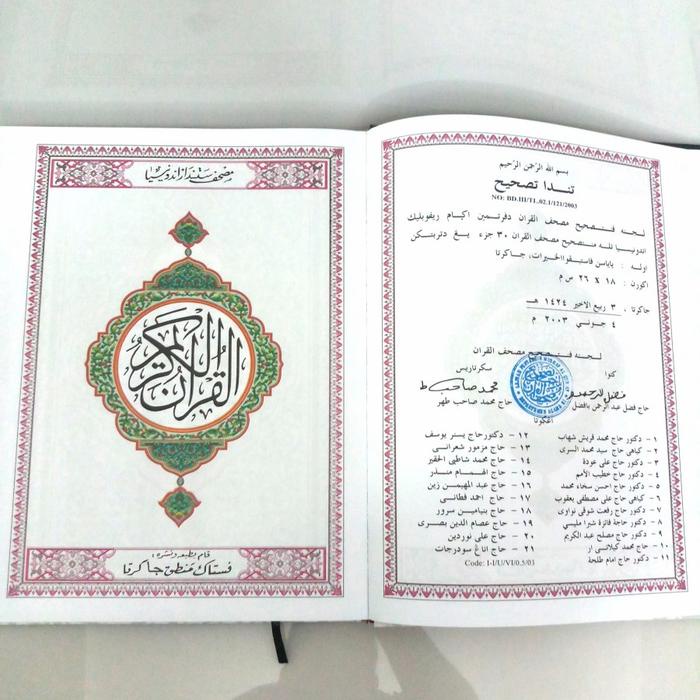 مصحف ستندار اندونيسيا
القرآن الكريم
قام بطبعه ونشره :
فستاك منطق جاكرتا
بسم الله الرّحمن الرّحيم
تندا تصحيح
NO: BD.III/TL.02.1/121/2003
لجنه فنتصحيح مصحف القران دفرتمين اكام ريفوبليك
اندونيسيا تله منتصحيح مصحف القران ٣٠ جزء يغ دتربتكن
اوله : ياياسن فاستبقواالخيرات، جاكرتا
اكورن : ١٨ X ٢٦ س م
جاكرتا ، ٣ ربيع الاخير ١٤٢٤ هـ
٤ جوني ٢٠٠٣ م
لجنه فنتصحيح مصحف القران
كتوا
سكرتاريس
حاج فضل عبد الرحمن بافضل
حاج محمد صاحب طهر
اغكوتا
١ - دكتور حاج محمد قريش شهاب
٢ - كياهي حاج سيد محمد السري
٣ - دكتور حاج علي عودة
٤ - دكتور حاج خطيب الأمم
٥ - دكتور حاج احسن سخاء محمد
٦ - كياهي حاج علي مصطفى يعقوب
٧ - دكتور حاج رفعت شوقي نواوي
٨ - دكتور حاجة فائزة شبرا مليبي
٩ - دكتور حاج مصلح عبد الكريم
١٠ - حاج محمد كيلاني ار
١١ - دكتور حاج امام طلحة
١٢ - دكتورحاج يسنر يوسف
١٣ - حاج مزمور شعراني
١٤ - حاج محمد شاطبي الحقير
١٥ - حاج الهمام منذر
١٦ - حاج عبد المهيمن زين
١٧ - حاج احمد فطاني
١٨ - حاج بنيامين سرور
١٩ - حاج عصام الدين بصري
٢٠ - حاج علي نوردين
٢١ - حاج اناغ سودرجات
Code: I-I/U/VI/0.5/03